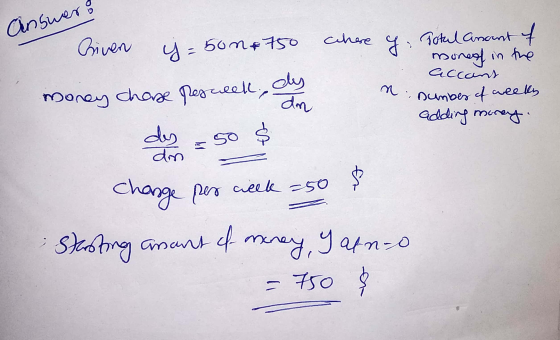 Answer:
Given y = 50n + 750 where y : Total amount of
money in the
account
money change per week, dy/dn
n : number of weeks
adding money.
dy/dn = 50 $
change per week = 50 $
: Starting amount of money, y at n=0
= 750 $